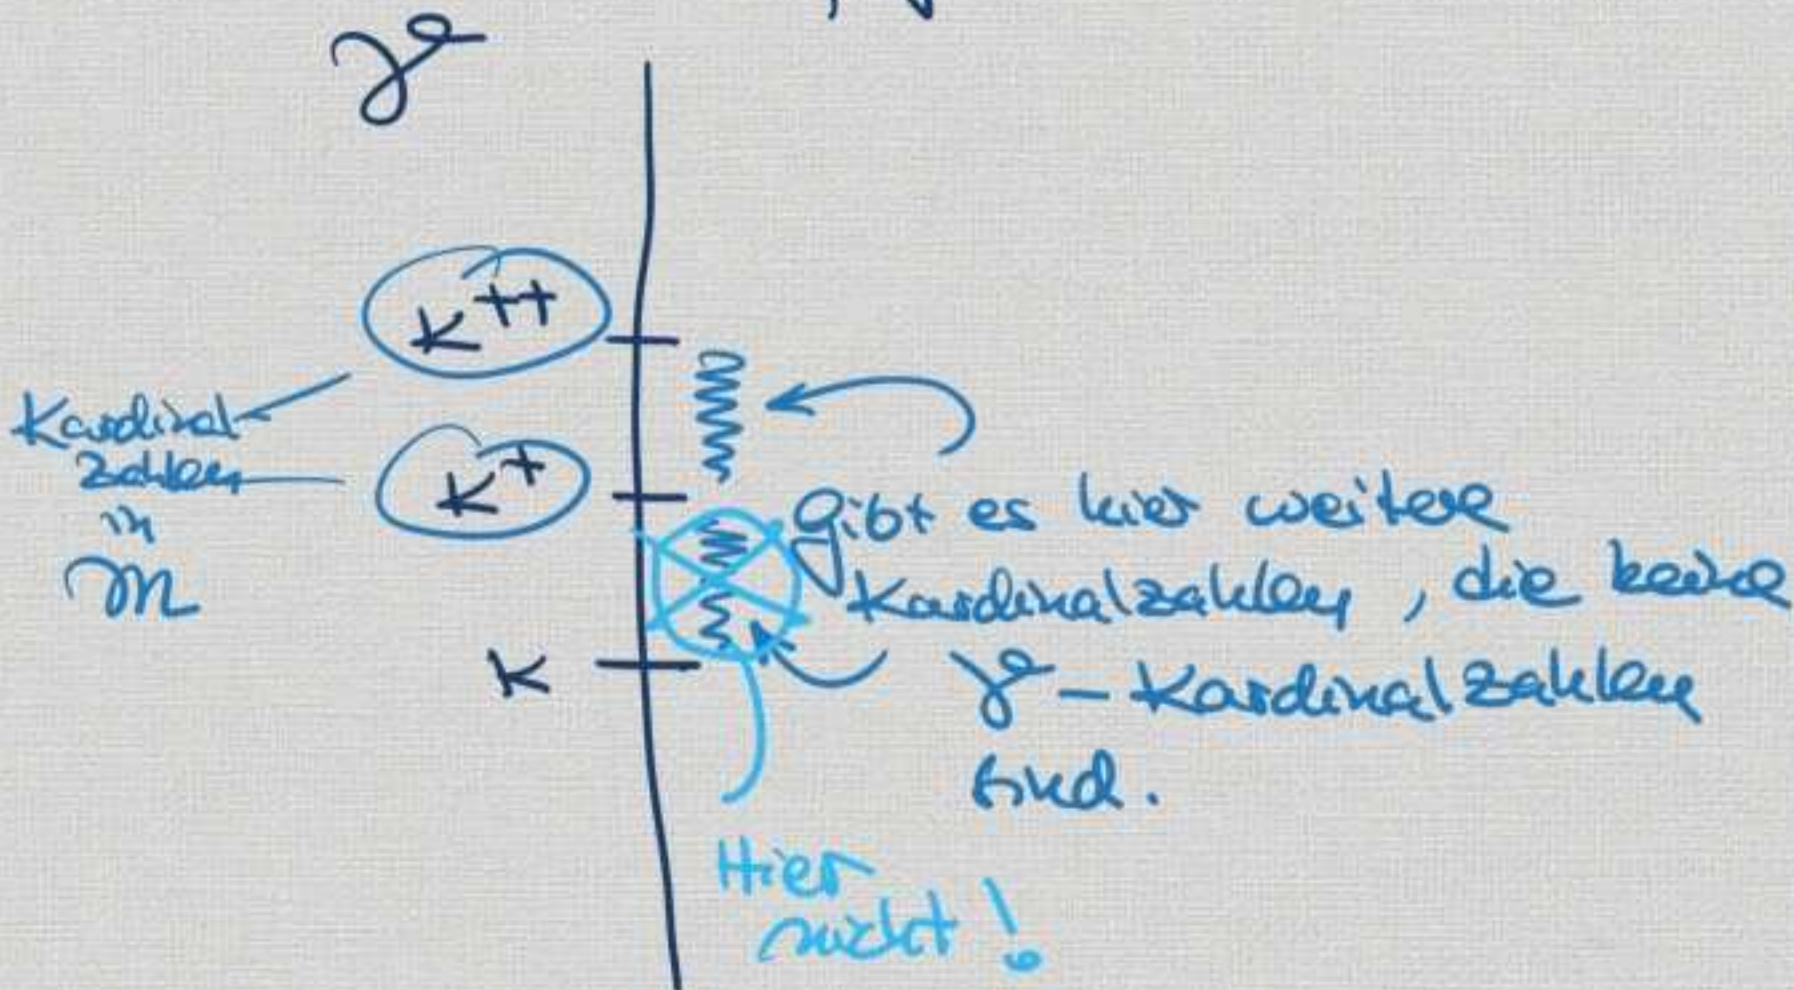 γ
κ⁺⁺
Kardinal-
zahlen
in
𝔪
κ⁺
κ
Gibt es hier weitere
Kardinalzahlen, die keine
γ-Kardinalzahlen
sind.
Hier
nicht!